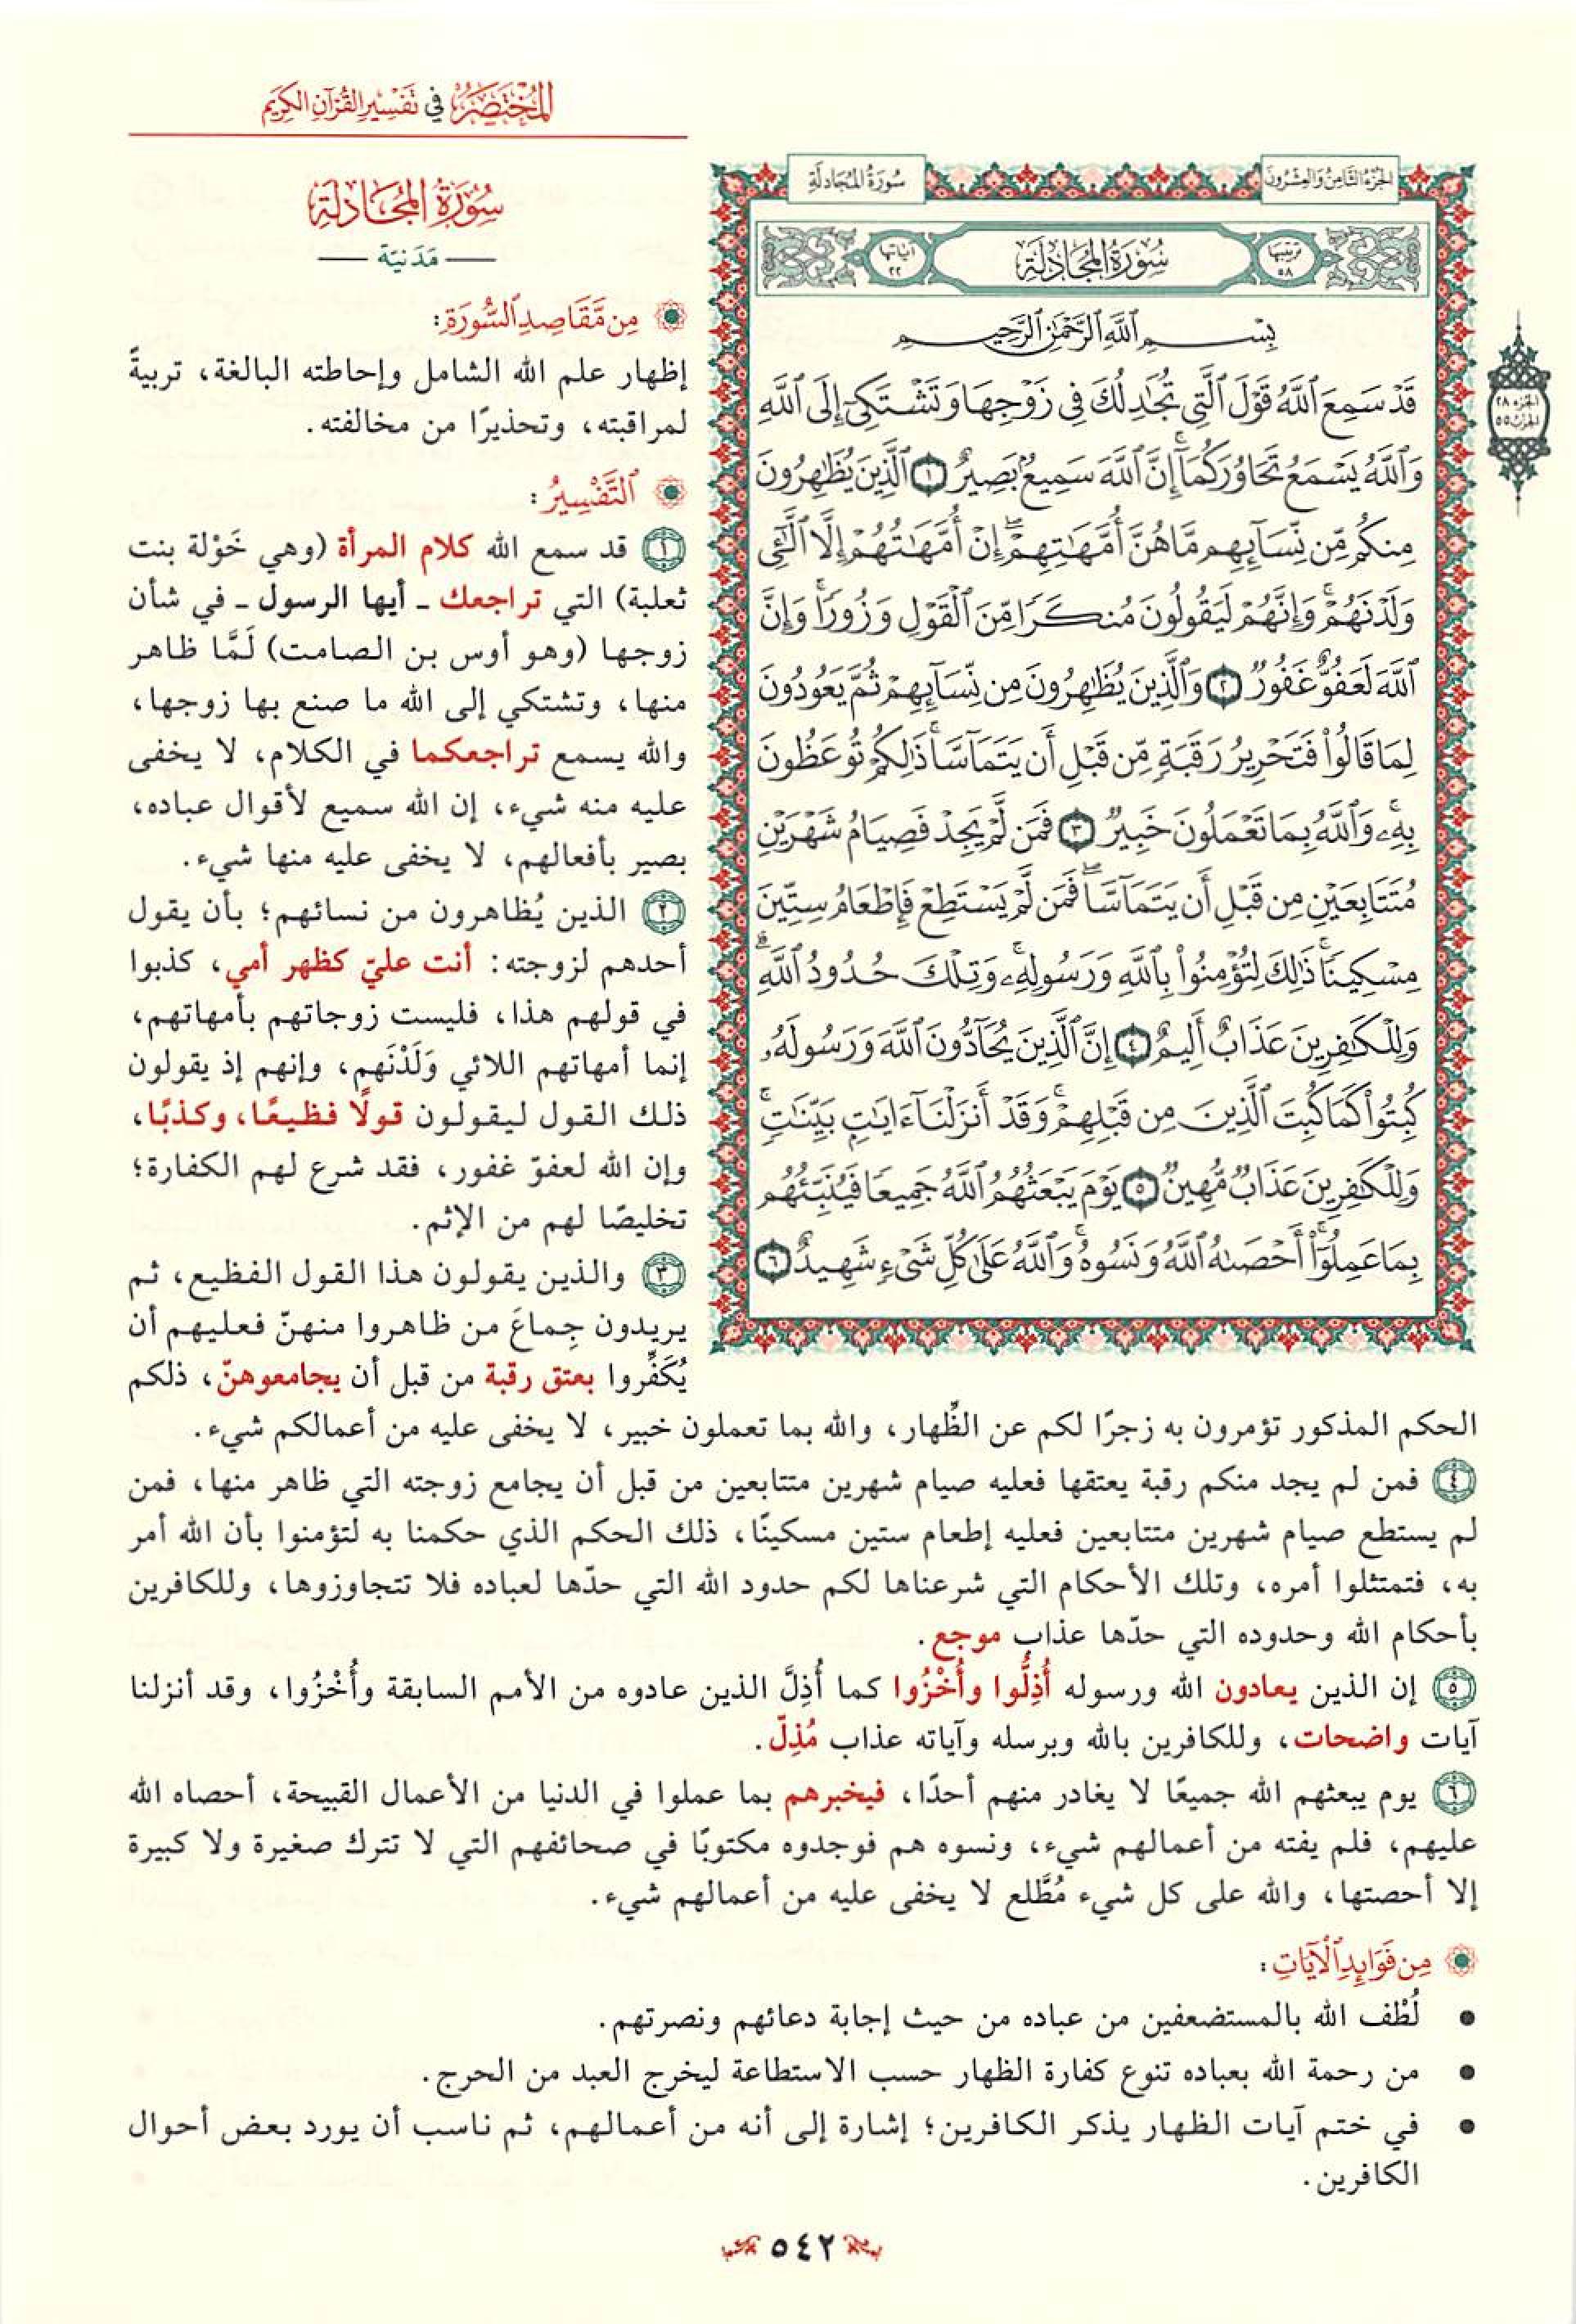 المختصر في تفسير القرآن الكريم
الجزء الثامن والعشرون
سورة المجادلة
ترتيبها ٥٨
سُورَةُ المُجَادلَة
آياتها ٢٢
بِسْمِ ٱللَّهِ ٱلرَّحْمَٰنِ ٱلرَّحِيمِ
قَدْ سَمِعَ ٱللَّهُ قَوْلَ ٱلَّتِي تُجَٰدِلُكَ فِي زَوْجِهَا وَتَشْتَكِيٓ إِلَى ٱللَّهِ
وَٱللَّهُ يَسْمَعُ تَحَاوُرَكُمَآۚ إِنَّ ٱللَّهَ سَمِيعُۢ بَصِيرٌ ١ ٱلَّذِينَ يُظَٰهِرُونَ
مِنكُم مِّن نِّسَآئِهِم مَّا هُنَّ أُمَّهَٰتِهِمْۖ إِنْ أُمَّهَٰتُهُمْ إِلَّا ٱلَّٰٓـِٔي
وَلَدْنَهُمْۚ وَإِنَّهُمْ لَيَقُولُونَ مُنكَرًا مِّنَ ٱلْقَوْلِ وَزُورًاۚ وَإِنَّ
ٱللَّهَ لَعَفُوٌّ غَفُورٌ ٢ وَٱلَّذِينَ يُظَٰهِرُونَ مِن نِّسَآئِهِمْ ثُمَّ يَعُودُونَ
لِمَا قَالُوا۟ فَتَحْرِيرُ رَقَبَةٍ مِّن قَبْلِ أَن يَتَمَآسَّاۚ ذَٰلِكُمْ تُوعَظُونَ
بِهِۦۚ وَٱللَّهُ بِمَا تَعْمَلُونَ خَبِيرٌ ٣ فَمَن لَّمْ يَجِدْ فَصِيَامُ شَهْرَيْنِ
مُتَتَابِعَيْنِ مِن قَبْلِ أَن يَتَمَآسَّاۖ فَمَن لَّمْ يَسْتَطِعْ فَإِطْعَامُ سِتِّينَ
مِسْكِينًاۚ ذَٰلِكَ لِتُؤْمِنُوا۟ بِٱللَّهِ وَرَسُولِهِۦۚ وَتِلْكَ حُدُودُ ٱللَّهِۗ
وَلِلْكَٰفِرِينَ عَذَابٌ أَلِيمٌ ٤ إِنَّ ٱلَّذِينَ يُحَآدُّونَ ٱللَّهَ وَرَسُولَهُۥ
كُبِتُوا۟ كَمَا كُبِتَ ٱلَّذِينَ مِن قَبْلِهِمْۚ وَقَدْ أَنزَلْنَآ ءَايَٰتٍۭ بَيِّنَٰتٍۚ
وَلِلْكَٰفِرِينَ عَذَابٌ مُّهِينٌ ٥ يَوْمَ يَبْعَثُهُمُ ٱللَّهُ جَمِيعًا فَيُنَبِّئُهُم
بِمَا عَمِلُوٓا۟ۚ أَحْصَىٰهُ ٱللَّهُ وَنَسُوهُۚ وَٱللَّهُ عَلَىٰ كُلِّ شَىْءٍ شَهِيدٌ ٦
الجزء ٢٨
الحزب ٥٥
سُورَةُ المُجَادلَة
مَدَنيّة
مِن مَّقَاصِدِ ٱلسُّورَةِ:
إظهار علم الله الشامل وإحاطته البالغة، تربيةً
لمراقبته، وتحذيرًا من مخالفته.
ٱلتَّفْسِيرُ:
١ قد سمع الله كلام المرأة (وهي خَوْلة بنت
ثعلبة) التي تراجعك ـ أيها الرسول ـ في شأن
زوجها (وهو أوس بن الصامت) لَمَّا ظاهر
منها، وتشتكي إلى الله ما صنع بها زوجها،
والله يسمع تراجعكما في الكلام، لا يخفى
عليه منه شيء، إن الله سميع لأقوال عباده،
بصير بأفعالهم، لا يخفى عليه منها شيء.
٢ الذين يُظاهرون من نسائهم؛ بأن يقول
أحدهم لزوجته: أنت عليّ كظهر أمي، كذبوا
في قولهم هذا، فليست زوجاتهم بأمهاتهم،
إنما أمهاتهم اللائي وَلَدْنَهم، وإنهم إذ يقولون
ذلك القول ليقولون قولًا فظيعًا، وكذبًا،
وإن الله لعفوّ غفور، فقد شرع لهم الكفارة؛
تخليصًا لهم من الإثم.
٣ والذين يقولون هذا القول الفظيع، ثم
يريدون جِماعَ من ظاهروا منهنّ فعليهم أن
يُكَفِّروا بعتق رقبة من قبل أن يجامعوهنّ، ذلكم
الحكم المذكور تؤمرون به زجرًا لكم عن الظِّهار، والله بما تعملون خبير، لا يخفى عليه من أعمالكم شيء.
٤ فمن لم يجد منكم رقبة يعتقها فعليه صيام شهرين متتابعين من قبل أن يجامع زوجته التي ظاهر منها، فمن
لم يستطع صيام شهرين متتابعين فعليه إطعام ستين مسكينًا، ذلك الحكم الذي حكمنا به لتؤمنوا بأن الله أمر
به، فتمتثلوا أمره، وتلك الأحكام التي شرعناها لكم حدود الله التي حدّها لعباده فلا تتجاوزوها، وللكافرين
بأحكام الله وحدوده التي حدّها عذاب موجع.
٥ إن الذين يعادون الله ورسوله أُذِلُّوا وأُخْزُوا كما أُذِلَّ الذين عادوه من الأمم السابقة وأُخْزُوا، وقد أنزلنا
آيات واضحات، وللكافرين بالله وبرسله وآياته عذاب مُذِلّ.
٦ يوم يبعثهم الله جميعًا لا يغادر منهم أحدًا، فيخبرهم بما عملوا في الدنيا من الأعمال القبيحة، أحصاه الله
عليهم، فلم يفته من أعمالهم شيء، ونسوه هم فوجدوه مكتوبًا في صحائفهم التي لا تترك صغيرة ولا كبيرة
إلا أحصتها، والله على كل شيء مُطَّلع لا يخفى عليه من أعمالهم شيء.
مِن فَوَائِدِ ٱلْآيَاتِ:
• لُطْف الله بالمستضعفين من عباده من حيث إجابة دعائهم ونصرتهم.
• من رحمة الله بعباده تنوع كفارة الظهار حسب الاستطاعة ليخرج العبد من الحرج.
• في ختم آيات الظهار يذكر الكافرين؛ إشارة إلى أنه من أعمالهم، ثم ناسب أن يورد بعض أحوال
الكافرين.
٥٤٢